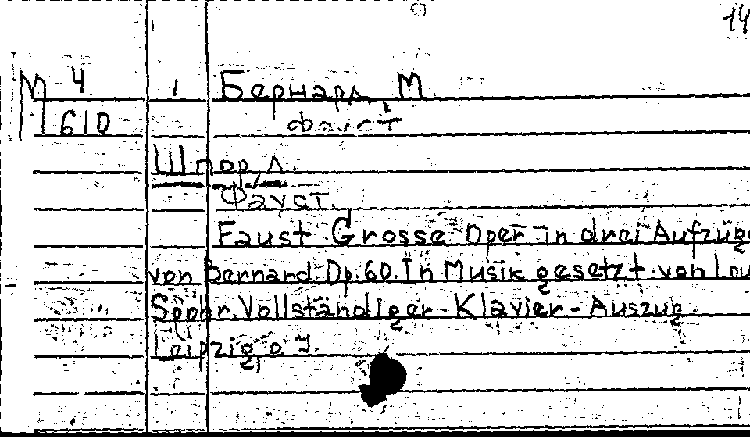 14
М 4 1 Бернард, М.
610 Фауст
Шпор, Л.
Фауст.
Faust Grosse Oper in drei Aufzüge
von Bernard. Op. 60. In Musik gesetzt von Lou
Spohr. Vollständiger - Klavier - Auszug.
Leipzig, o. J.